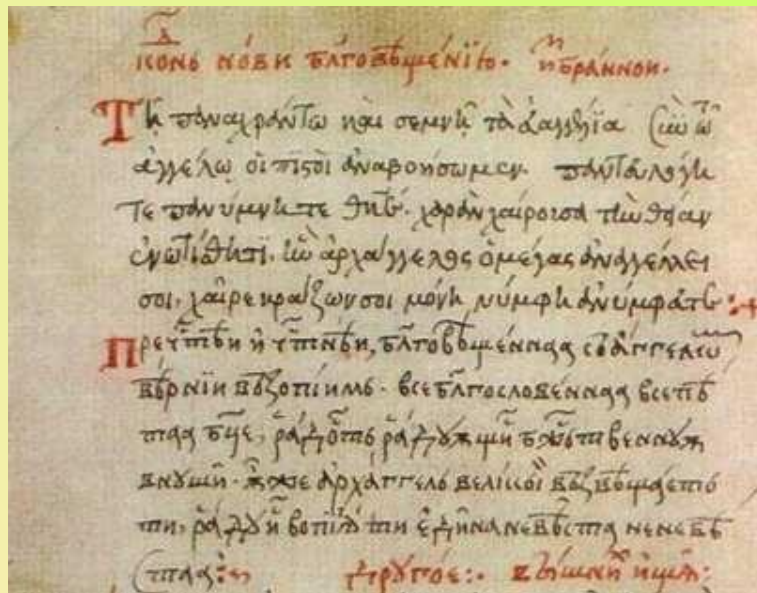 конⷣь новы бл҃говѣщенїю. и҆збра́нной.
Τῇ παναχράντω καὶ σεμνῇ τὰ ἐυαγγέλια σὺν τῶ
ἀγγέλω οἱ πιστοὶ ἀναβοήσωμεν. πανευλόγη
τε πανύμνητε χαρὰν χαίρουσα τὴν θείαν
ἐνωτίσθητι, ἣν ἀρχάγγελος ὁ μέγας ἀναγγέλλει
σοι, χαῖρε κράζων σοι μόνη νύμφη ἀνύμφευτε:+
Пречⷭ҇тѣи и҆ чⷭ҇тнѣи, бл҃говѣще́ннаа съ а҆́ггелѡⷨ
вѣ́рнїи възопїимъ. все бл҃гослове́ннаа всепѣ
таа бц҃е, ра́дость ра́дꙋѫщи бжⷭ҇твеннꙋѫ
внꙋши. ѫже архаггелъ великои възвѣщаетъ
ти, ра́дꙋиⷭ вопїѧ ти е҆дина невѣста неневѣ
стаа: дрꙋго́е: